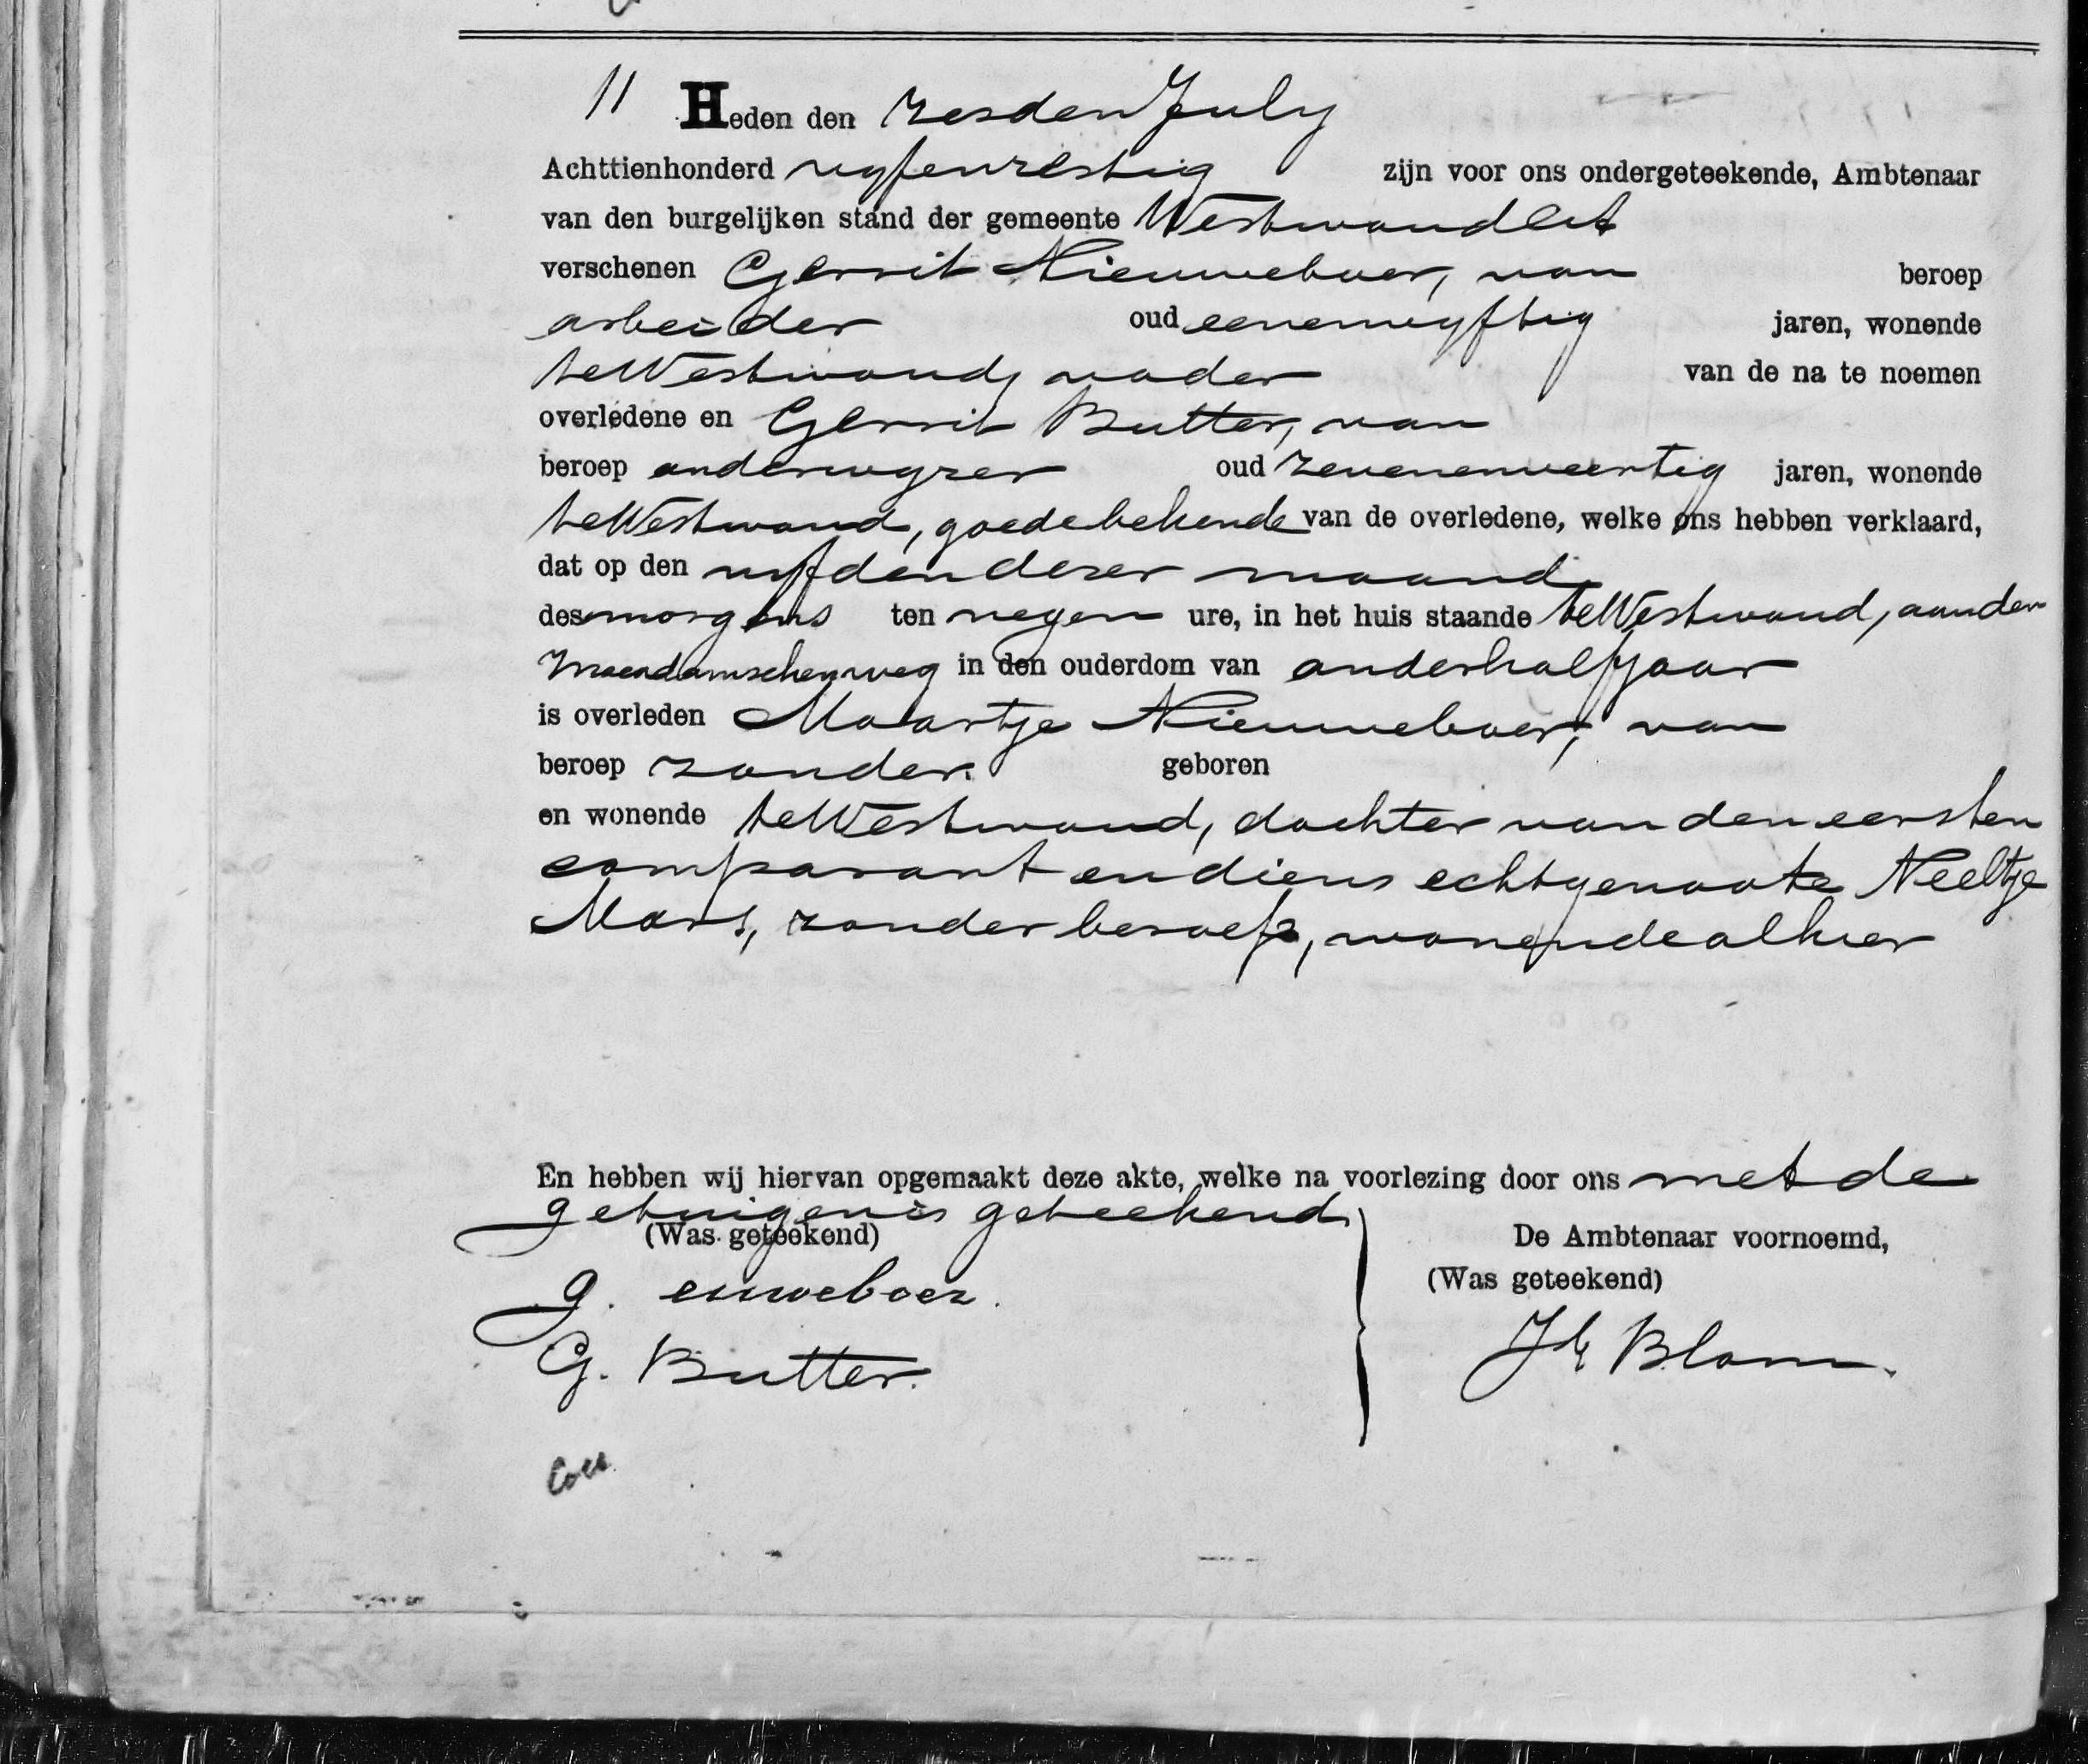 11 Heden den zesden July
Achttienhonderd vyfenzestig zijn voor ons ondergeteekende, Ambtenaar
van den burgelijken stand der gemeente Westwoud
verschenen Gerrit Nieuweboer, van beroep
arbeider oud eenenvyftig jaren, wonende
te Westwoud, vader van de na te noemen
overledene en Gerrit Butter, van
beroep onderwyzer oud zevenenveertig jaren, wonende
te Westwoud, goede bekende van de overledene, welke ons hebben verklaard,
dat op den vyfden dezer maand
des morgens ten negen ure, in het huis staande te Westwoud, aan den
in den ouderdom van anderhalf jaar
is overleden Maartje Nieuweboer, van
beroep zonder. geboren
en wonende te Westwoud, dochter van den eersten
comparant en diens echtgenoote Neeltje
Mars, zonder beroep, wonende alhier
En hebben wij hiervan opgemaakt deze akte, welke na voorlezing door ons met de
getuigen is geteekend.
(Was geteekend) De Ambtenaar voornoemd,
(Was geteekend)
g. euweboer.
G. Butter. Blom.